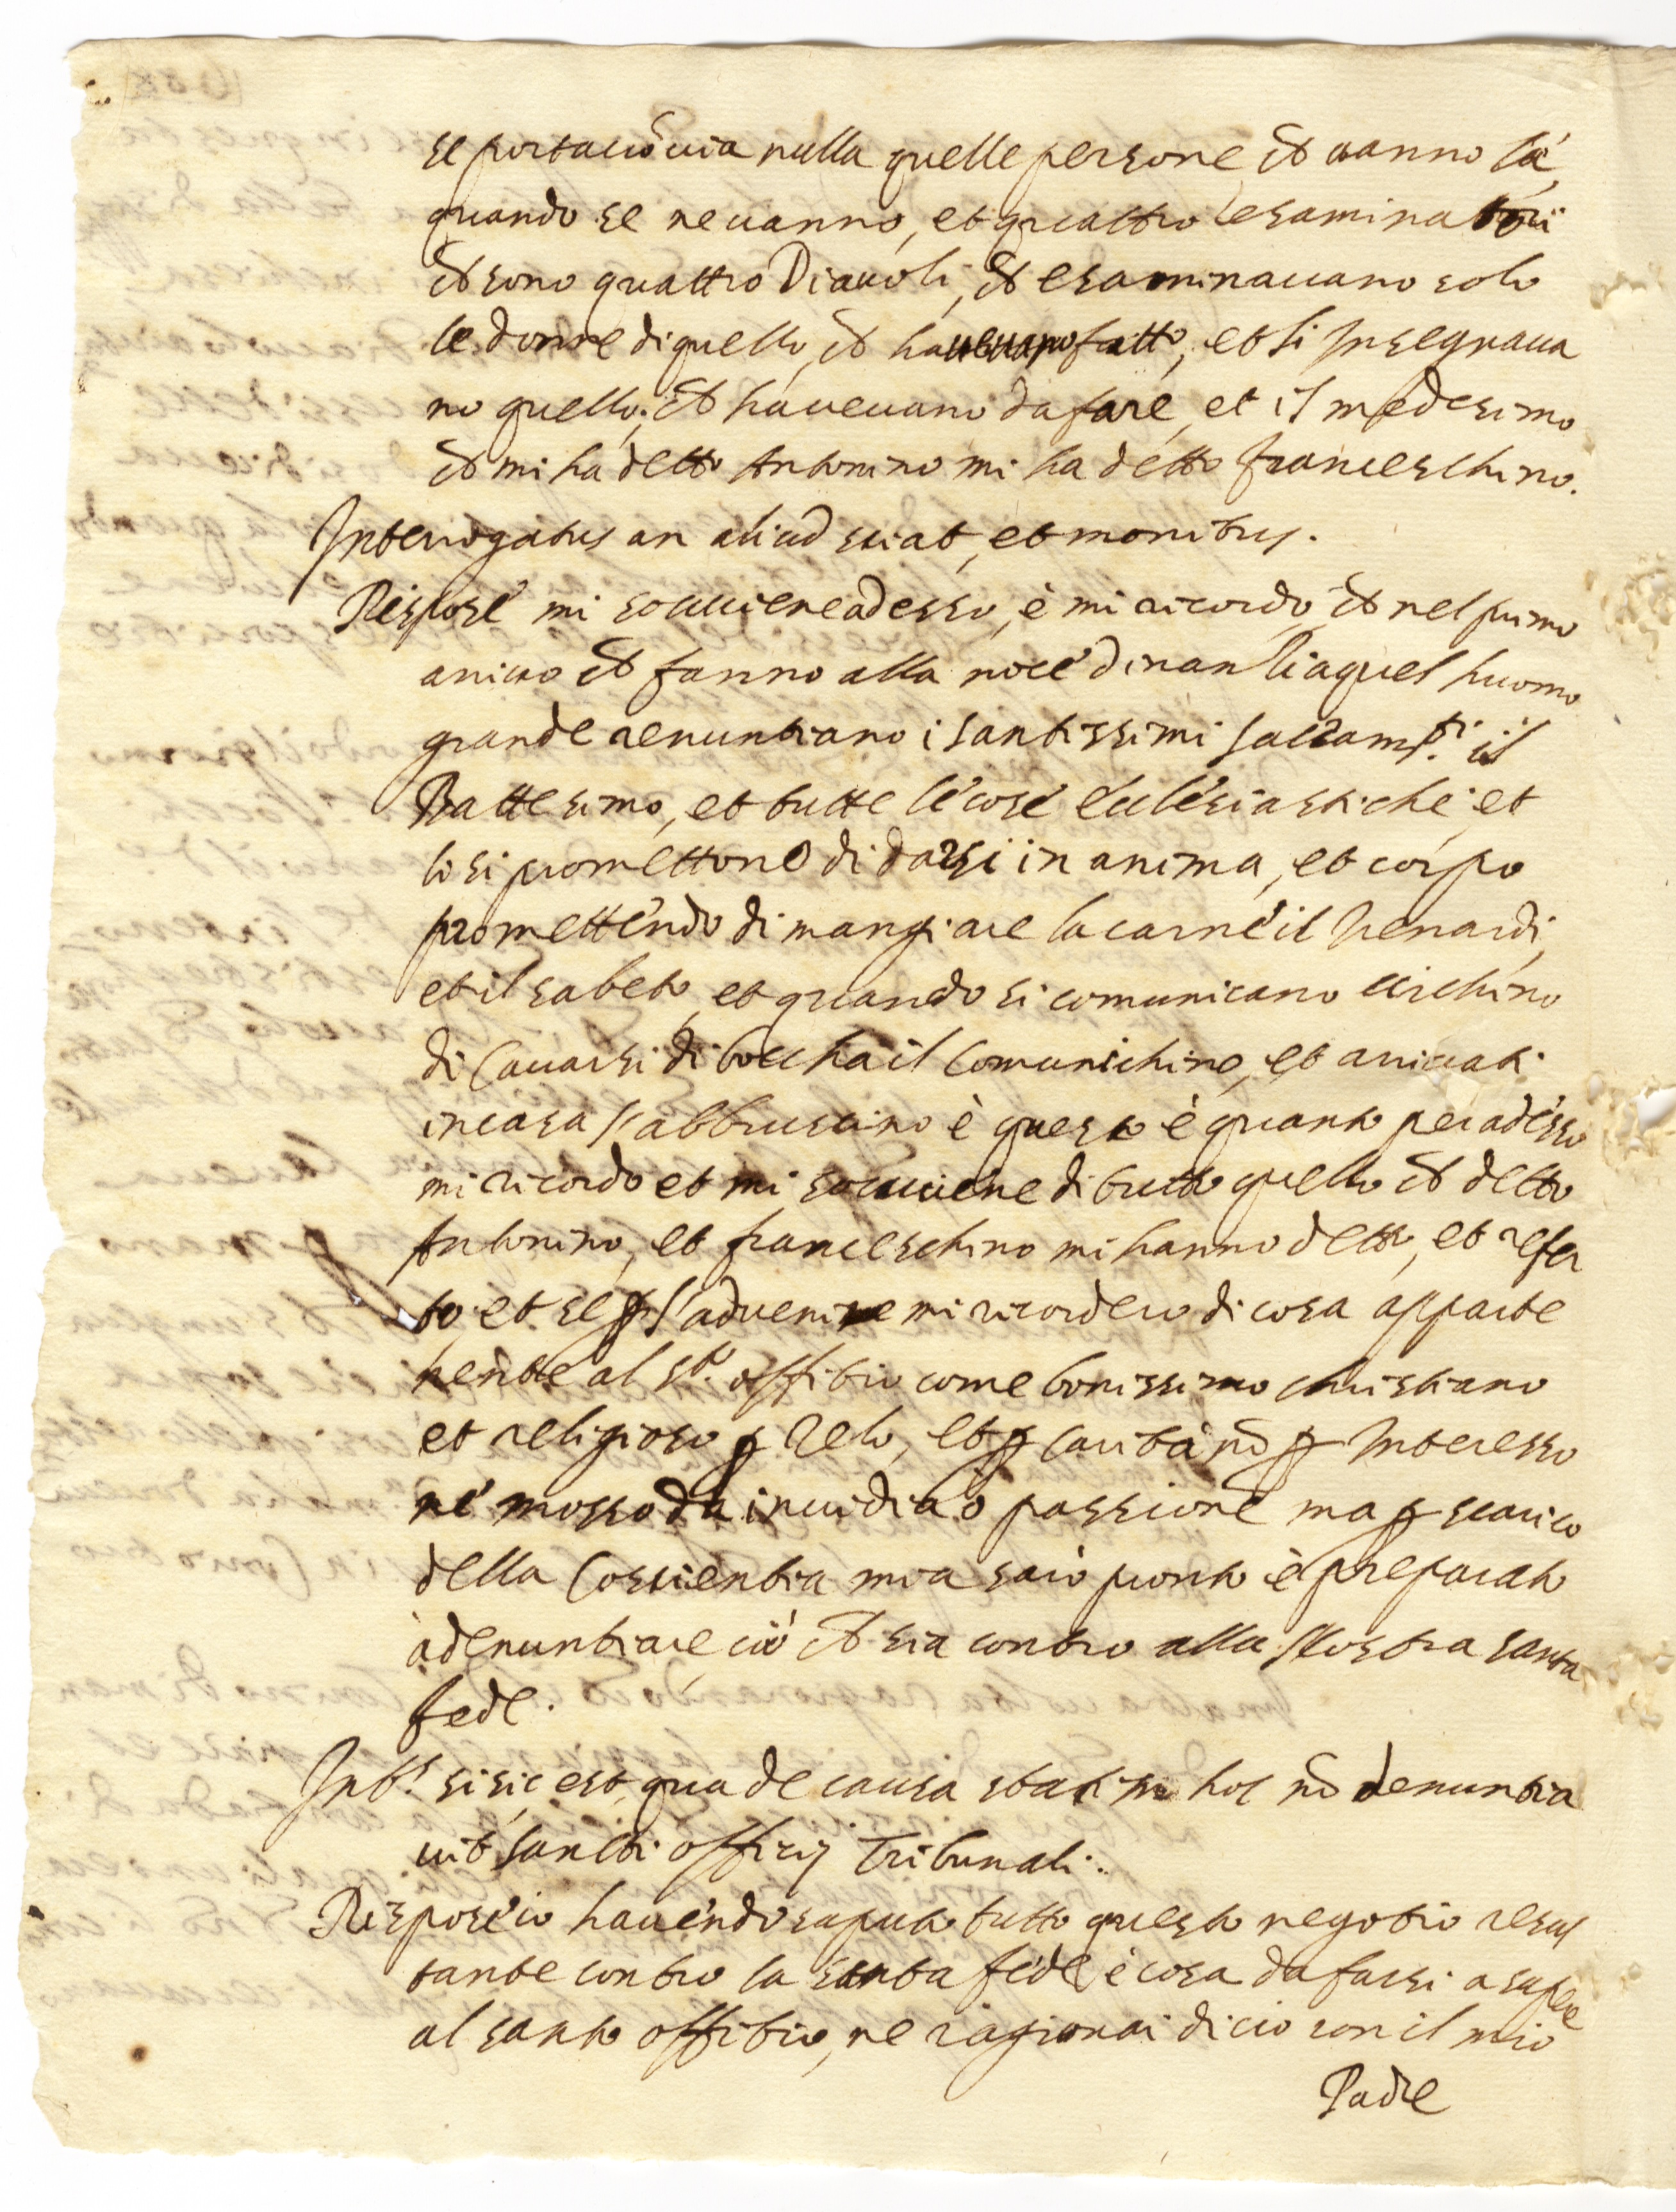 se portauõ uia nulla quelle persone ch vanno là,
quando se ne uanno, et quattro esaminatori
ch sono quattro Diauoli, ch esaminauano solo
le donne di quello, ch haueuano fatto, et li Insegnaua
no quello, ch haueuano da fare, et il medesimo
ch mi ha detto Antonino mi ha detto franceschino.
Interrogatus an aliud sciat, et monitus.
Rispose mi souuiene adesso, è mi ricordo, ch nel primo
arriuo ch fanno alla noce dinanzi a quel huomo
grande renuntiano i santissimi sacram.ti il
Battesimo, et tutte le cose Ecclesiastiche, et
lo si promettono di darsi in anima, et corpo
promettendo di mangiare la carne il Venardi,
et il sabeto, et quando si comunicano cerchino
di Cauarsi di boccha il Comunichino, et arriuati
in casa l'abbruscino è questo è quanto per adesso
mi ricordo et mi souuiene di tutto quello ch detto
Antonino, et franceschino mi hanno detto, et refer
to, et se p l'aduenire mi ricordero di cosa apparte
nente al s.to offitio come bonissimo christiano
et religioso p Zelo, et p carità nõ p Interesso
né mosso da inuidia ò passione ma p scarico
della Coscientia mia sarò pronto è preparato
à denuntiare ciò ch sia contro alla Nostra santa
fede.
Int.s si sic est, qua de causa statim hoc nõ denuntia
uit sancti officij Tribunali.
Rispose io hauendo saputo tutto questo negotio resul
tante contro la santa fede è cosa da farsi a sapere
al santo offitio, ne ragionai di cio con il mio
Padre